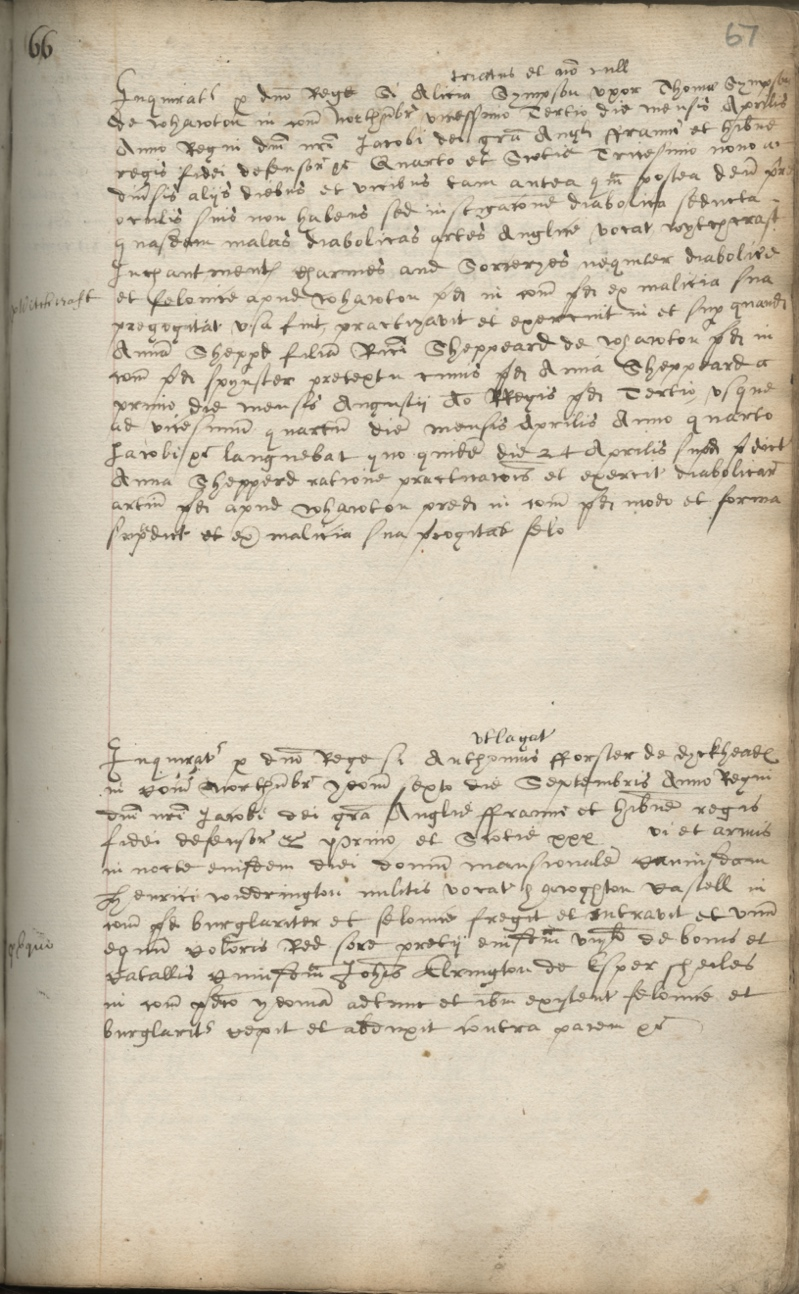 66
67
triatus et no null
Inquirat' p dno Rege Si Alicia Sympson uxor Thome Sympson
de Whawton in com Northubr vicessimo Tertio die mensis Aprilis
Anno Regni dni nri Jacobi dei gra Angli ffranc et Hibnie
regis fidei defensor &c Quarto et Scotie Tricesimo nono ac
diusis alijs diebus et vicibus tam antea qm postea deu pre
oculis suis non habens sed instigacone diabolica seducta
quasdam malas diabolicas artes Anglice vocat wytchcraft
Inchantment Charmes and Sorceryes nequiter diabolice
Witchcraft
et felonice apud Whawton pd in com pd ex malicia sua
precogitat usa fuit, practizavit et exercuit in et sup quand
Anna Sheppd filia Rici Sheppeard de Whawton pd in
com pd spynster pretextu cuius pd Anna Sheppeard a
primo die mensis Augustij Ao RRegis pd Tertio usque
ad vicesimum quartu die mensis Aprilis Anno quarto
Jacobi &c languebat quo quidem die 24 Aprilis supd pdict
Anna Shepperd ratione practicacois et exercit diabolicar
artiu pd apud Whawton pred in com pd modo et forma
supdict et ex malicia sua pcogitat felo
utlagat
Inquirat' p dno Rege si Anthonius fforster de
in Com Northubr yeom sexto die Septembris Anno Regni
dni nri Jacobi dei gra Anglie ffrancie et Hibnie regis
fidei defensor &c Primo et Scotie xxx vi et armis
in nocte eiusdem diei domum mansionale cuiusdam
Henrici Widdrington militis vocat Hawghton Castell in
com pd burglariter et felonice fregit et intravit et unu
equu coloris Red sore pretij de bonis et
catallis cuiusdm Johis Elrington de Esper sheiles
in com pdco yeoman adtunc et ibm existent felonice et
burglarit' cepit et abduxit contra pacem &c